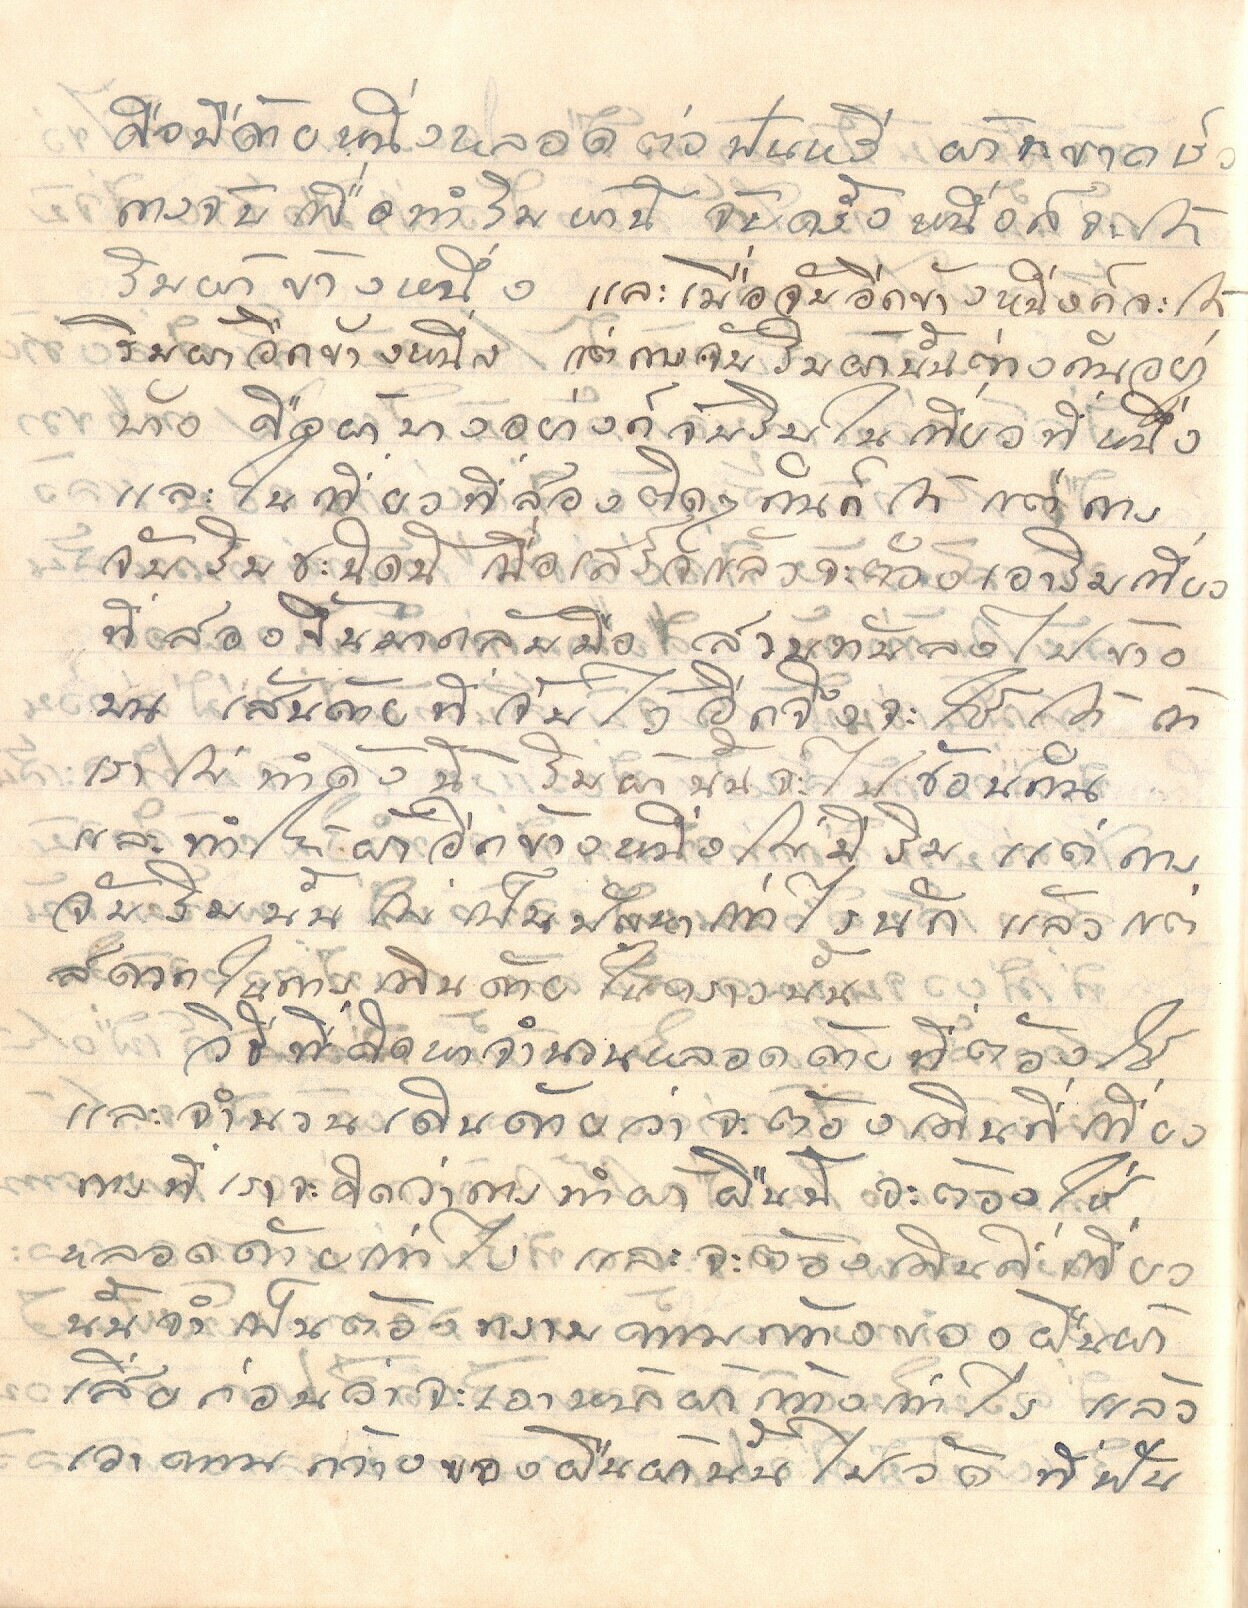 คือมีด้ายหนึ่งหลอดต่อฟันหวี ผ้าจะขาดเร็ว
การจับเพื่อทำริมผ้านี้ จับครั้งหนึ่งก็จะได้
ริมผ้าข้างหนึ่ง และเมื่อจับอีกข้างหนึ่งก็จะได้
ริมผ้าอีกข้างหนึ่ง แต่การจับริมผ้านั้นต่างกันอยู่
บ้าง คือผ้าบางอย่างก็จับริมในเที่ยวที่หนึ่ง
และในเที่ยวที่สองติดๆกันก็ได้ แต่การ
จับริมชะนิดนี้ เมื่อเสร็จแล้วจะต้องเอาริมเที่ยว
ที่สองขึ้นมากลับมือ สวนทับลงไปข้าง
บน เส้นด้ายที่จับไว้อีกจึงจะใช้ได้ ถ้า
เราไม่ทำดังนี้ ริมผ้านั้นจะไปซ้อนกัน
และทำให้ผ้าอีกข้างหนึ่งไม่มีริม แต่การ
จับริมนั้นไม่เป็นปัญหาเท่าไรนัก แล้วแต่
สดวกในการเดินด้ายในคราวนั้น
วิธีที่คิดหาจำนวนหลอดด้ายที่ต้องใช้
และจำนวนเดินด้ายว่าจะต้องเดินกี่เที่ยว
การที่เราจะคิดว่าการทำผ้าผืนนี้ จะต้องใช้
หลอดด้ายเท่าไร และจะต้องเดินกี่เที่ยว
นั้นจำเป็นต้องทราบความกว้างของผืนผ้า
เสียก่อนว่าจะเอาหน้าผ้ากว้างเท่าไร แล้ว
เอาความกว้างของผืนผ้านั้นไปวัดที่ฟัน